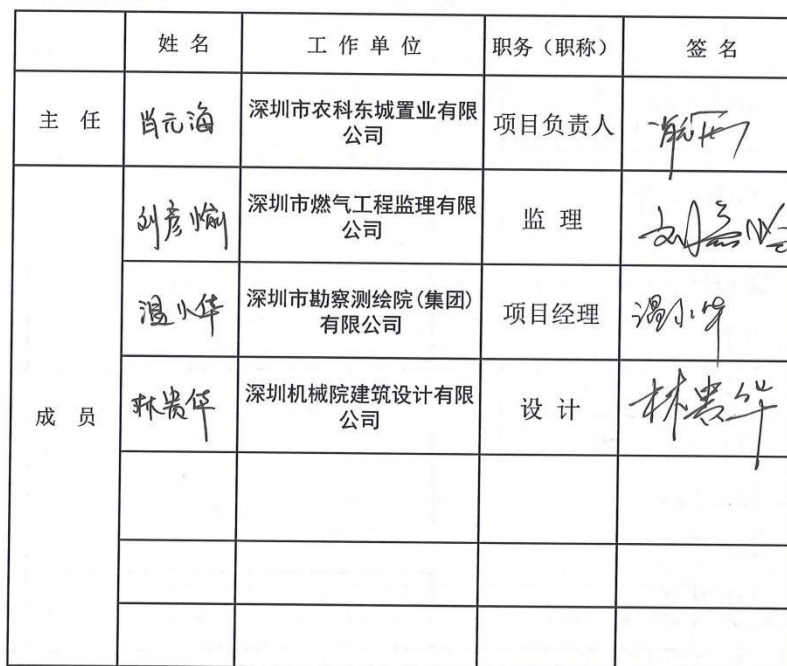 姓名 工作单位 职务（职称） 签名
主任 肖元海 深圳市农科东城置业有限
公司 项目负责人
刘彦愉 深圳市燃气工程监理有限
公司 监理
温小华 深圳市勘察测绘院(集团)
有限公司 项目经理 温小华
成员 林贵华 深圳机械院建筑设计有限
公司 设计 林贵华